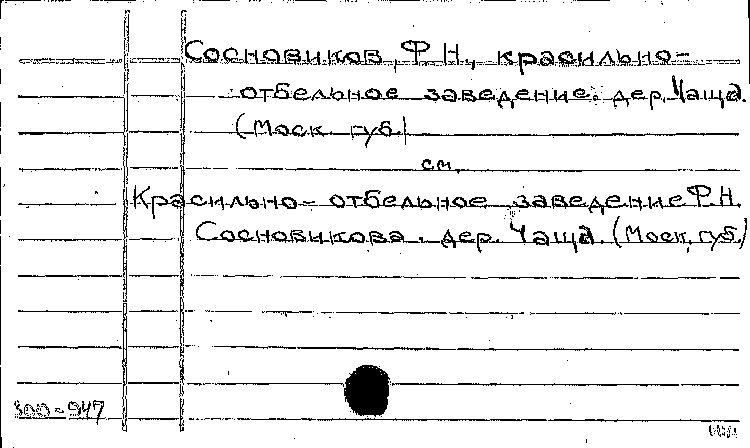 Сосновиков, Ф. Н., красильно-
отбельное заведение. дер. Чаща.
(Моск. губ.)
см.
Красильно-отбельное заведение Ф.Н.
Сосновикова. дер. Чаща. (Моск. губ.)
300-947